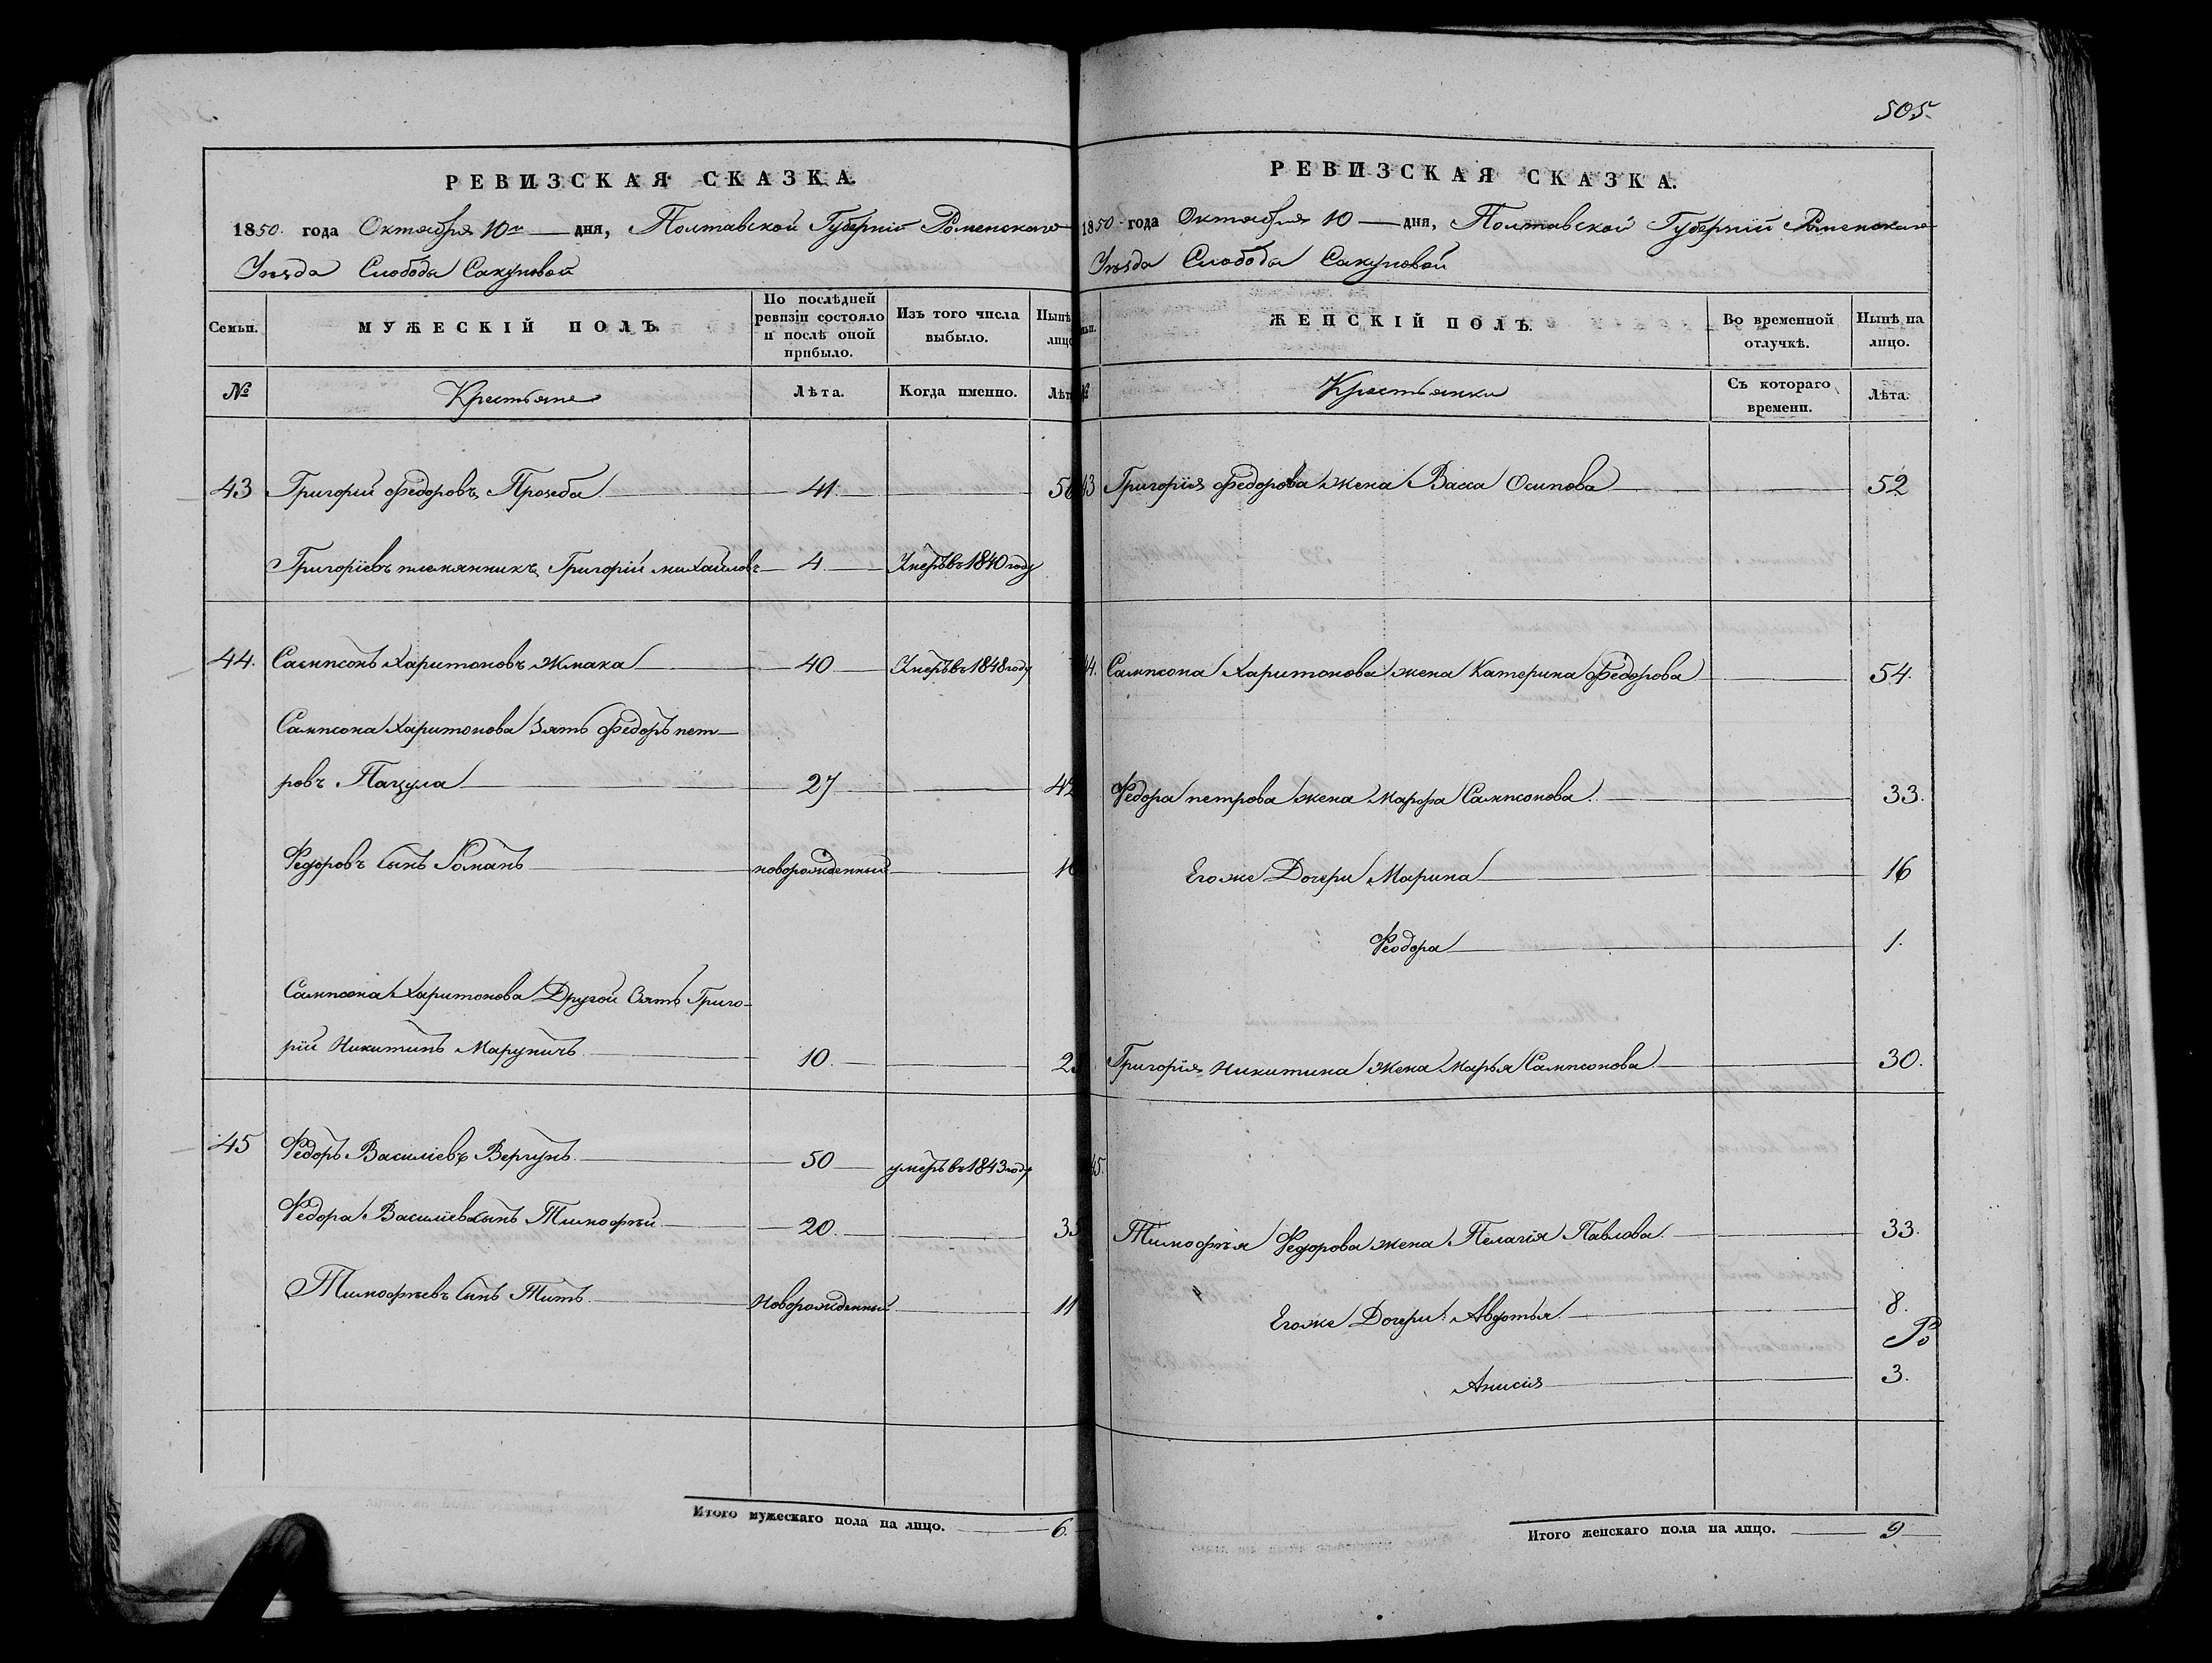 505.
РЕВИЗСКАЯ СКАЗКА.
1850. года Октября 10го дня, Полтавской Губерніи Роменского
Уѣзда Слободы Сакуновой
Семьи. МУЖЕСКІЙ ПОЛЪ. По послѣдней ревизіи состояло и послѣ оной прибыло. Изъ того числа выбыло. Нынѣ лицо
№ Крестьяне Лѣта. Когда именно. Лѣт
43 Григорій Федоровъ Прозеба 41 56
Григоріевъ племянникъ Григорій михайловъ 4 Умеръ въ 1840 году
44. Сампсонъ Харитоновъ Жмака 40 Умеръ въ 1848 году
Сампсона Харитонова зять Федоръ пет-
ровъ Пацула 27 42
Федоровъ сынъ Романъ новорожденный 10
Сампсона Харитонова Другой Зять Григо-
рій Никитинъ Маруничъ 10. 25
45 Федоръ Василіевъ Вергунъ 50 умеръ въ 1843 году
Федора Василіева сынъ Тимофѣй 20. 35
Тимофѣевъ сынъ Титъ Новорожденный 11
Итого мужескаго пола на лицо. 6.
РЕВИЗСКАЯ СКАЗКА.
1850 года Октября 10 дня, Полтавской Губерніи Роменского
Уѣзда Слободы Сакуновой
ьи. ЖЕНСКІЙ ПОЛЪ. Во временной отлучкѣ. Нынѣ на лицо.
№ Крестьянки Съ котораго времени. Лѣта.
43 Григорія Федорова жена Васса Осипова 52
44. Сампсона Харитонова жена Катерина Федорова 54.
Федора петрова жена Марфа Сампсонова. 33.
Егоже Дочери Марина 16
Феодора 1.
Григорія Никитина жена Марья Сампсонова 30.
45.
Тимофѣя Федорова жена Пелагія Павлова. 33.
Егоже Дочери: Авдотья. 8.
Анисія 3.
Итого женскаго пола на лицо. 9